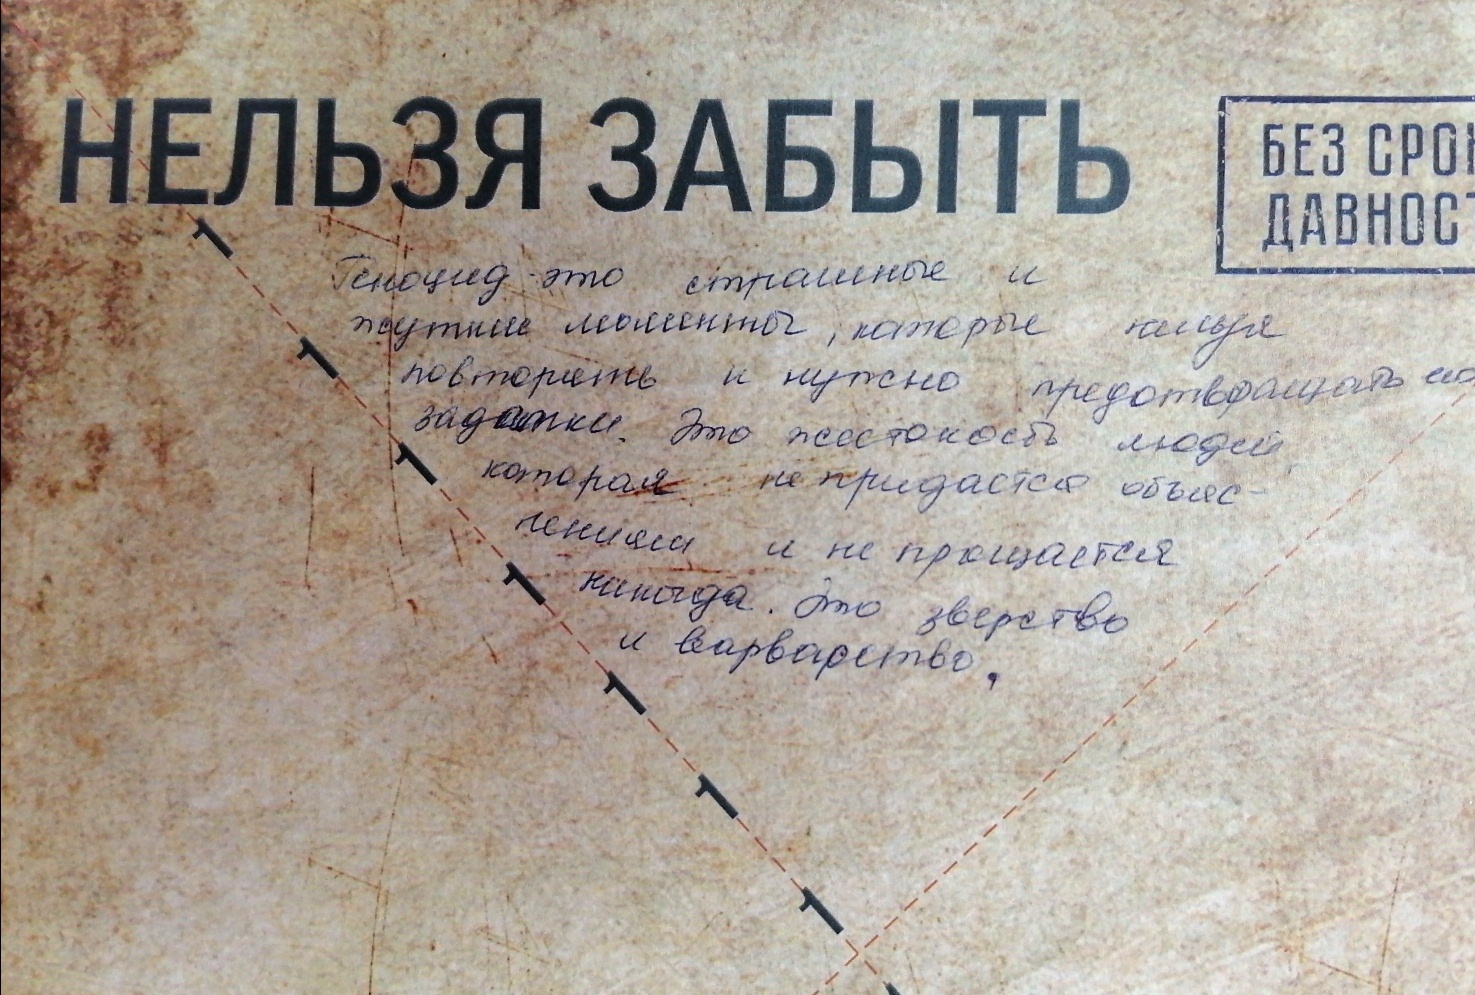 НЕЛЬЗЯ ЗАБЫТЬ
БЕЗ СРОК
ДАВНОСТ
Геноцид - это страшные и
жуткие моменты, которые нельзя
повторять и нужно предотвращать их
задатки. Это жестокость людей,
которая не придастся объяс-
нениям и не прощается
никогда. Это зверство
и варварство.